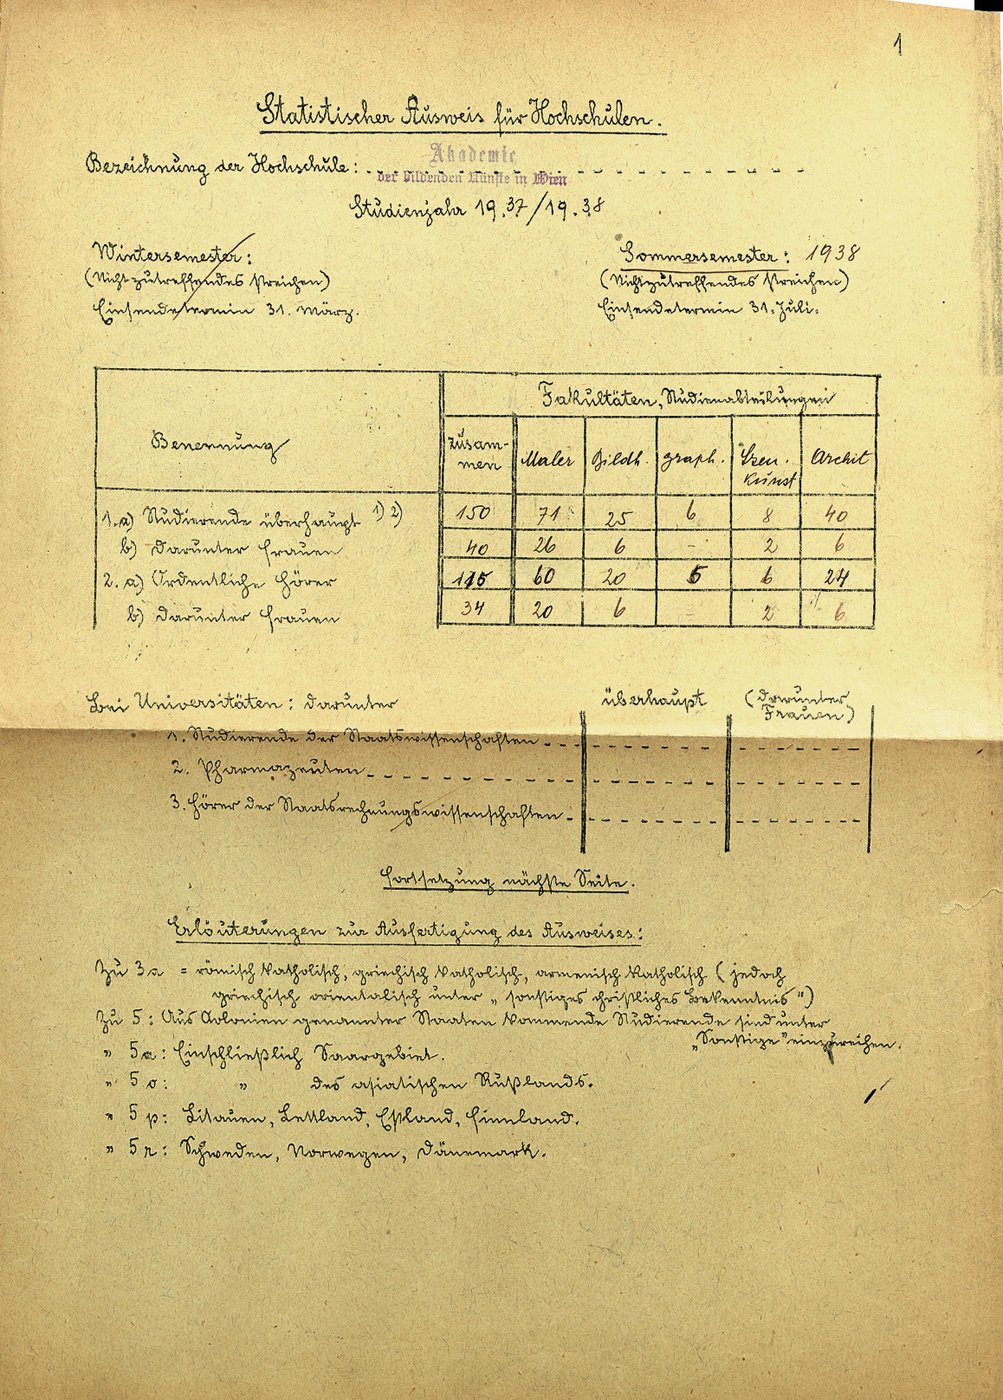 1
Statistischer Ausweis für Hochschulen.
Bezeichnung der Hochschule: Akademie
der bildenden Künste in Wien
Studienjahr 19.37/19.38
Wintersemester: Sommersemester: 1938
(Nichtzutreffendes streichen) (Nichtzutreffendes streichen)
Einsendetermin 31. März. Einsendetermin 31. Juli.
Fakultäten, Studienabteilungen
Benennung zusam- Maler Bildh. graph. Szen. Archit
men kunst
1. a) Studierende überhaupt 1) 2) 150 71 25 6 8 40
b) darunter Frauen 40 26 6 - 2 6
2. a) Ordentliche Hörer 115 60 20 5 6 24
b) darunter Frauen 34 20 6 - 2 6
Bei Universitäten: darunter überhaupt (darunter
Frauen)
1. Studierende der Staatswissenschaften
2. Pharmazeuten
3. Hörer der Staatsrechnungswissenschaften
Fortsetzung nächste Seite.
Erläuterungen zur Ausfertigung des Ausweises:
Zu 3a = römisch katholisch, griechisch katholisch, armenisch katholisch (jedoch
griechisch orientalisch unter „sonstiges christliches Bekenntnis")
Zu 5: Aus Kolonien genannter Staaten kommende Studierende sind unter
„Sonstige" einzureihen.
" 5a: Einschließlich Saargebiet.
" 5o: " des asiatischen Rußlands.
" 5p: Litauen, Lettland, Estland, Finnland.
" 5r: Schweden, Norwegen, Dänemark.